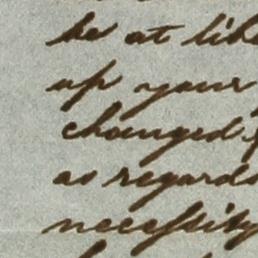 be at lib
up your
changed
as regards
necessity